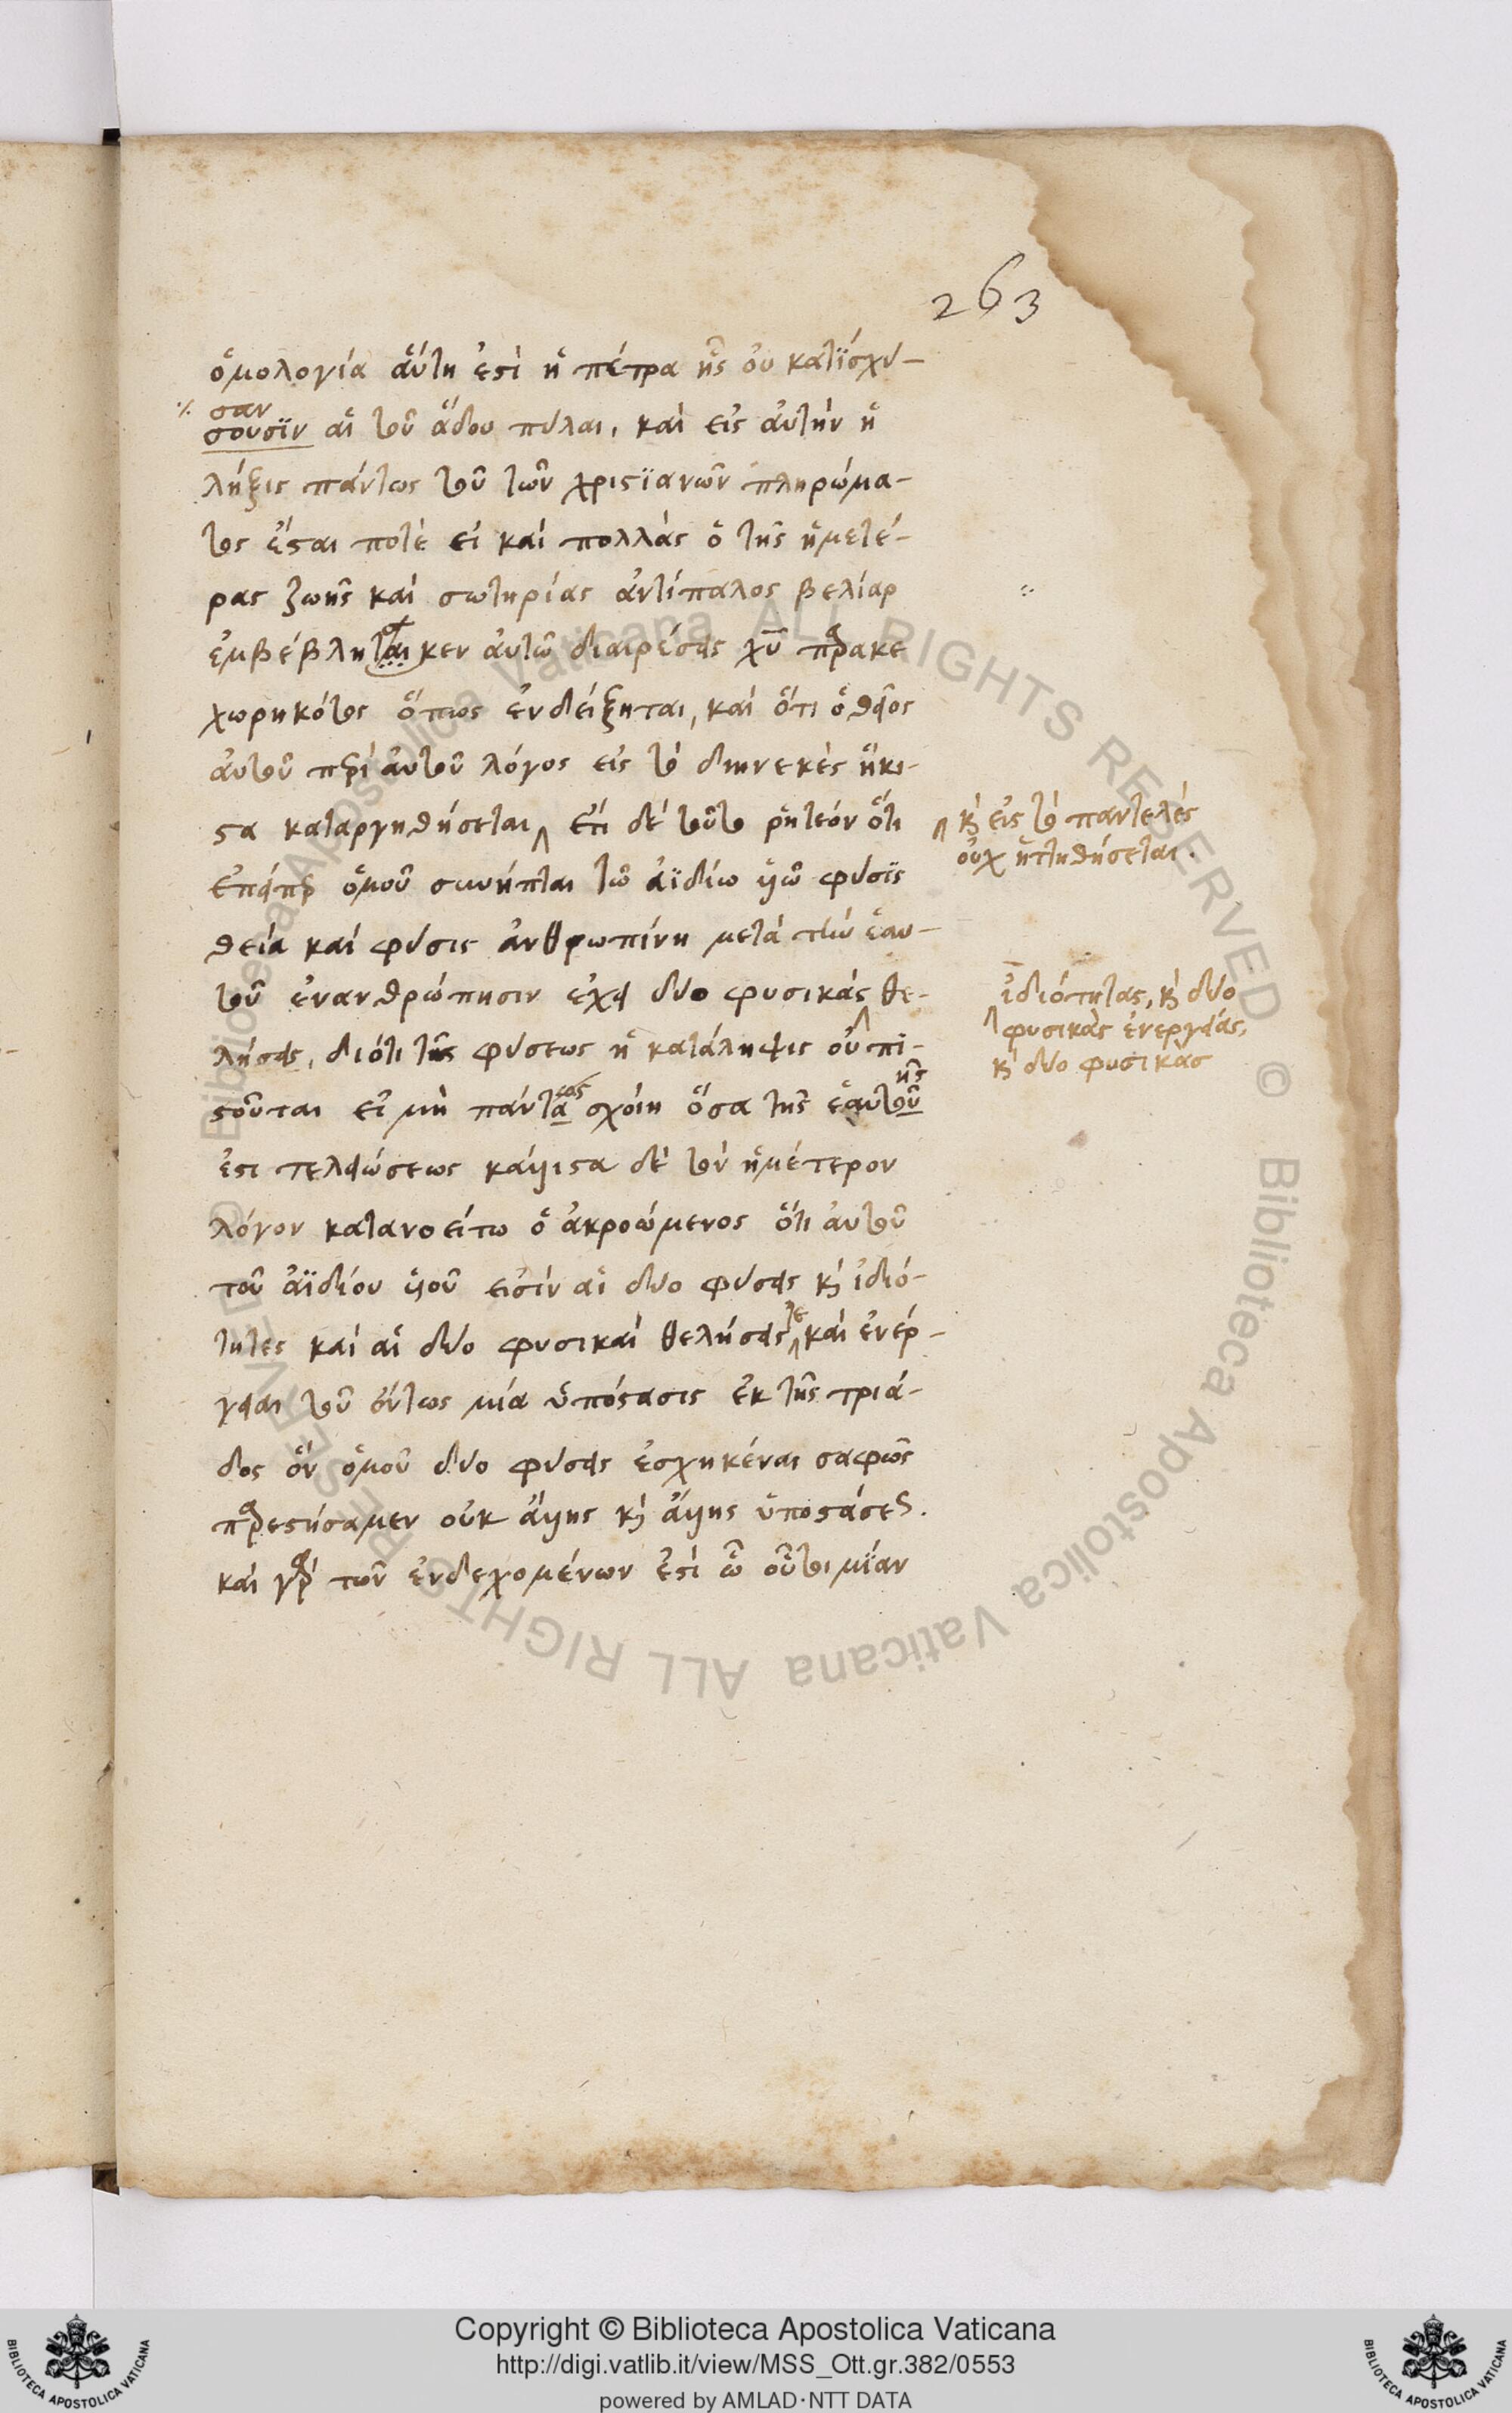 263
ὁμολογία αὕτη ἐστὶ ἡ πέτρα ἧς οὐ κατϊσχύ-
σαν
σουσϊν αἱ τοῦ ἅδου πύλαι, καὶ εἰς αὐτὴν ἡ
λήξις πάντως τοῦ τῶν χριστϊανῶν πληρώμα-
τος ἔσται ποτὲ εἰ καὶ πολλὰς ὁ τῆς ἡμετέ-
ρας ζωῆς καὶ σωτηρίας ἀντίπαλος βελίαρ
ἐμβέβληται κεν αὐτῶ διαιρέσεις χῦ παρακε
χωρηκότος ὅπως ἐνδείξηται, καὶ ὅτι ὁ θεῖος
αὐτοῦ περὶ αὐτοῦ λόγος εἰς τὸ διηνεκὲς ἥκι-
στα καταργηθήσεται ἐπὶ δὲ τοῦτο ῥητέον ὅτι
καὶ εἰς τὸ παντελές
οὐχ ἡττηθήσεται.
ἐπείπερ ὁμοῦ συνήπται τῶ ἀϊδίω υἱῶ φύσϊς
θεία καὶ φύσις ἀνθρωπίνη μετὰ τὴν ἑαυ-
τοῦ ἐνανθρώπησιν ἔχει δύο φυσικὰς θε-
ἰδιότητας, καὶ δύο
φυσικὰς ἐνεργείας,
καὶ δύο φυσικὰσ
λήσεις, διότι τῆς φύσεως ἡ κατάληψις οὐ πι-
στοῦται εἰ μὴ παντὰ σχοίη ὅσα τῆς ἑαυτοῦ
ἐστι τελειώσεως κάλλιστα δὲ τὸν ἡμέτερον
λόγον κατανοείτω ὁ ἀκροώμενος ὅτι αὐτοῦ
τοῦ ἀϊδίου υἱοῦ εἰσὶν αἱ δύο φύσεις καὶ ἰδιό-
τητες καὶ αἱ δύο φυσικαὶ θελήσεις τε καὶ ἐνέρ-
γειαι τοῦ ὄντως μία ὑπόστασις ἐκ τῆς τριά-
δος ὃν ὁμοῦ δύο φύσεις ἐσχηκέναι σαφῶς
παρεστήσαμεν οὐκ ἄλλης καὶ ἄλλης ὑποστάσεως.
καὶ γὰρ τῶν ἐνδεχομένων ἐστὶ ὦ οὗτοι μϊαν
Copyright © Biblioteca Apostolica Vaticana
http://digi.vatlib.it/view/MSS_Ott.gr.382/0553
powered by AMLAD·NTT DATA